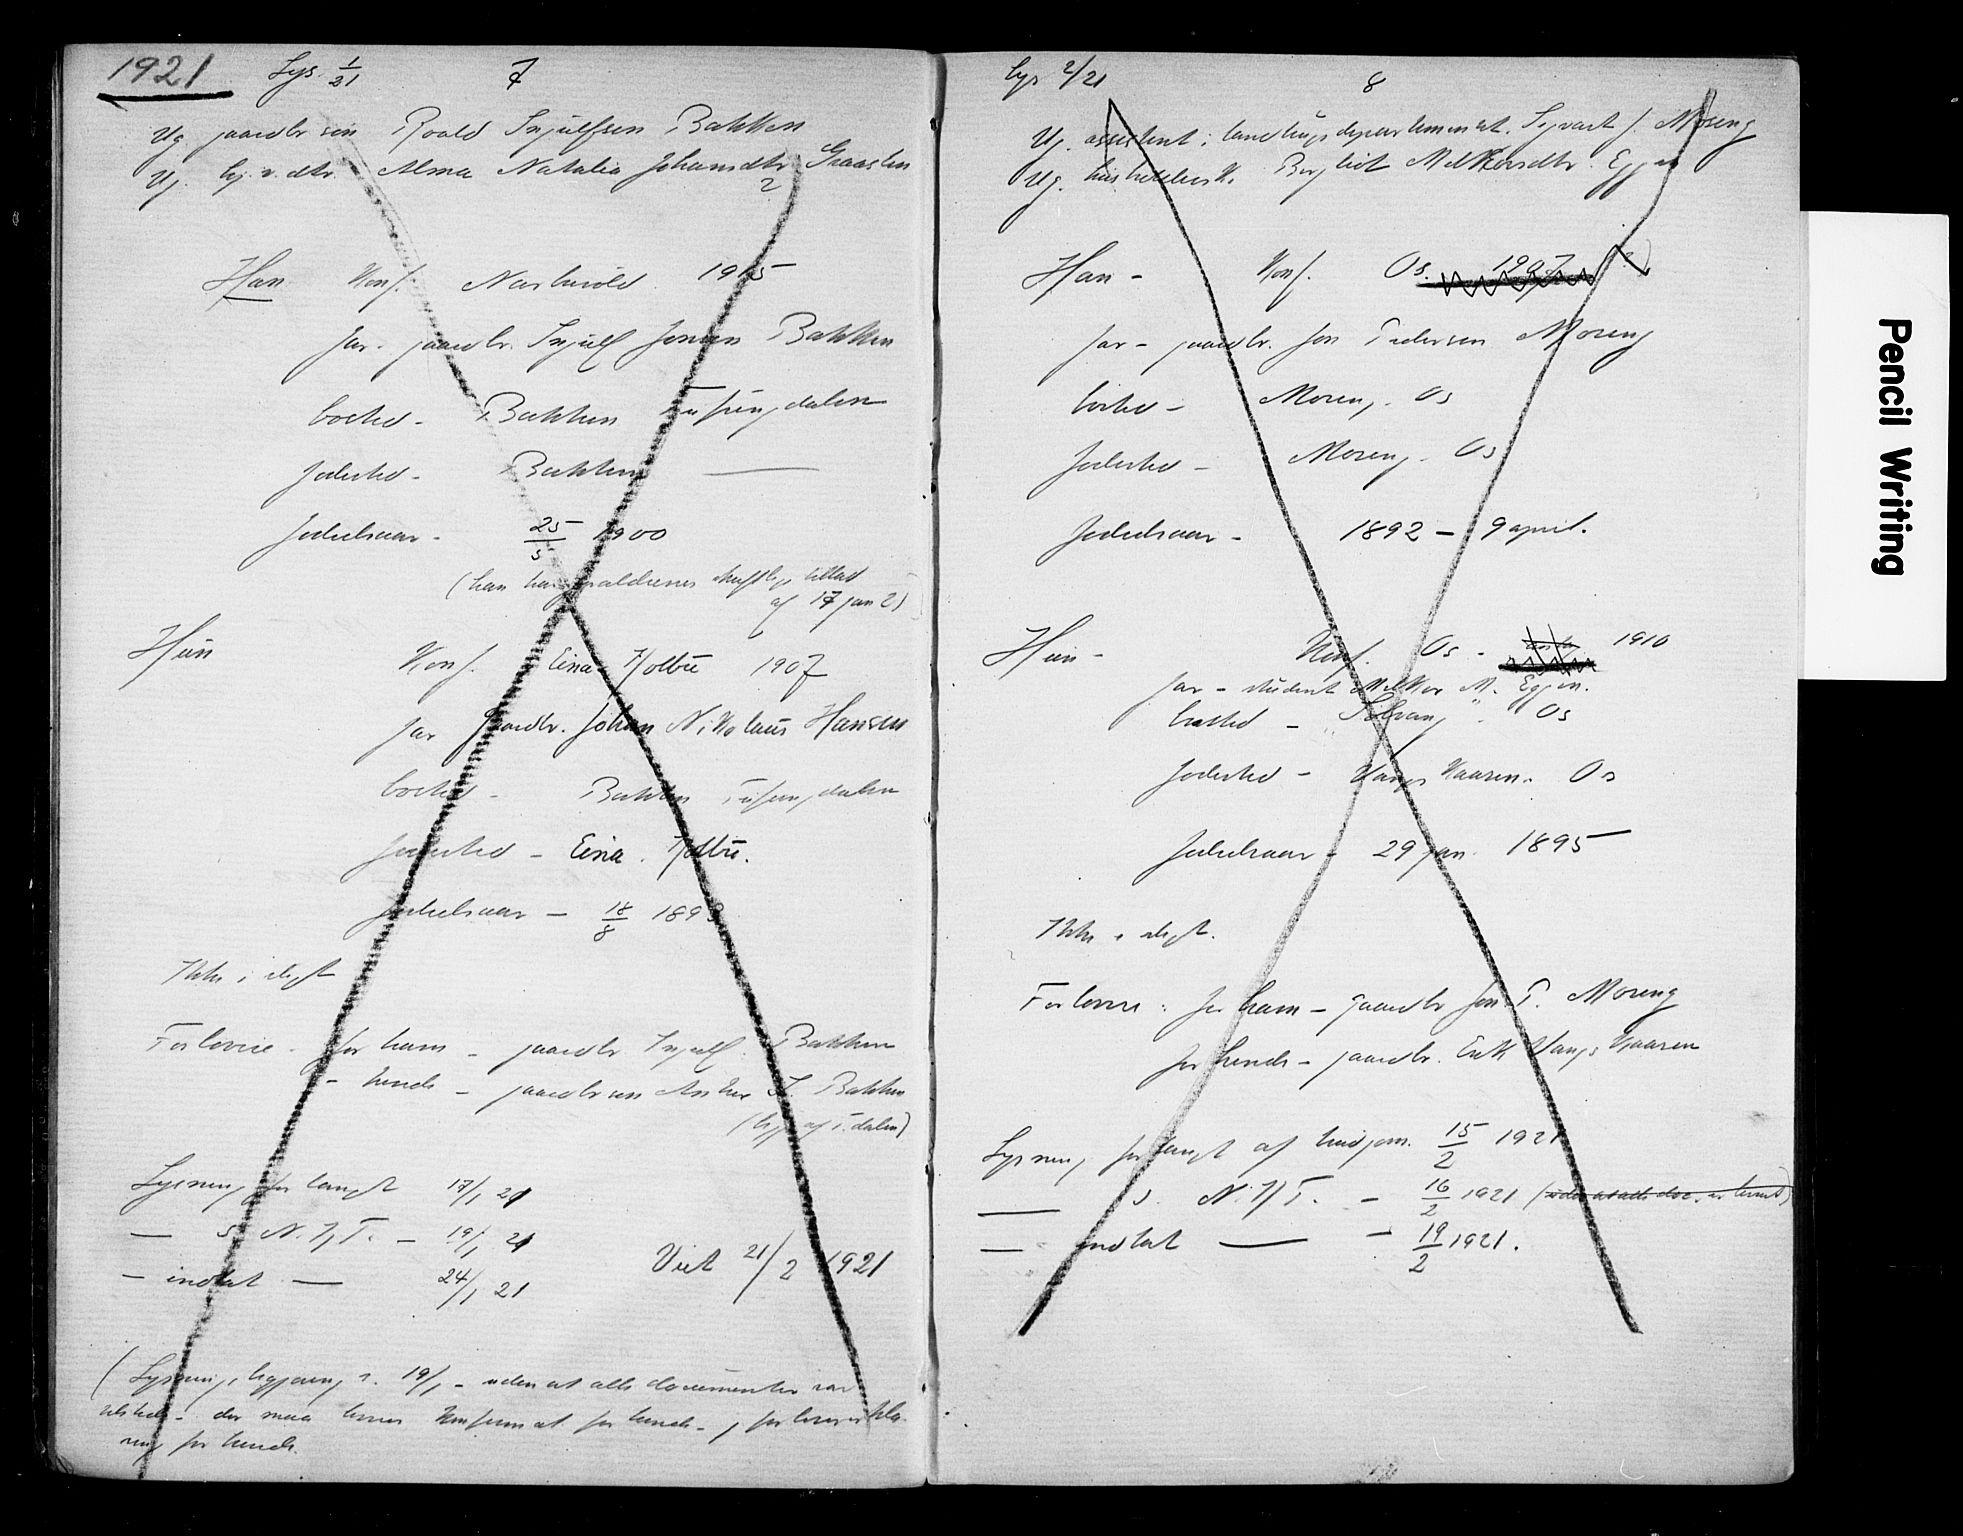 1921 Lys. 1/21 7
Ug. gaardbr. søn Roald Ingulfsen Bakken
Ug. Alma Natalia Johansdtr. Graasten
2
Han Konf. Narbuvold 1915
far - gaardbr. Ingulf Jonsen Bakken
bosted - Bakken Tufsingdalen
fødested - Bakken —
fødselsaar - 25/5 1900
(han har forældrenes skriftlige tillad
af 17 jan 21)
Hun Konf. Eina Toten 1907
far gaardbr. Johan Nikolaus Hansen
bosted - Bakken Tufsingdalen
fødested - Eina
fødselsaar - 18/8 1893
Ikke i slegt
Forlovere - for ham - gaardbr Ingulf Bakken
- hende - gaardbruker J. Bakken
af T.dalen)
Lysning forlangt 17/1 21
— s. N.T. - 19/1 21
— indtat — 24/1 21
Viet 21/2 1921
(Lysning 19/1 - uden at alle documenter var
tilstede - der maa for hende - forlovererklæ-
ring for hende.
Lys 2/21 8
Ug. assistent i landbrugsdepartementet Sigvart J. Moseng
Ug. Bergliot Melkiorsdtr. Eggen
Han - Konf. Os. 1907 (?)
far - gaardbr. Jon Pedersen Moseng
bosted - Moseng. Os
fødested - Moseng. Os
fødselsaar - 1892 - 9 april.
Hun - Konf. Os - 1910
far - student Melkior M. Eggen.
bosted - Solvang Os
fødested - Vangskaasen. Os
fødselsaar - 29 jan. 1895
Ikke i slegt.
Forlovere: for ham - gaardbr Jon P. Moseng
for hende - gaardbr. Erik Vangskaasen
Lysning forlangt af brudgom. 15/2 1921
— s. N. T. - 16/2 1921 (uden at alle doc. er
— indtat — - 19/2 1921.
Pencil Writing